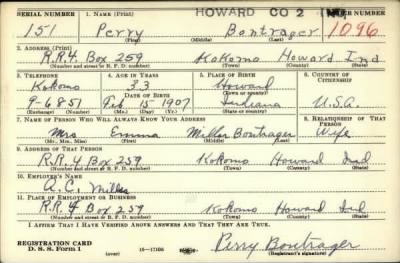 HOWARD CO 2
SERIAL NUMBER 1. NAME (Print)
151 Perry Bontrager 1096
(First) (Middle) (Last)
2. ADDRESS (Print)
R.R.4 Box 259 Kokomo Howard Ind
(Number and street or R. F. D. number) (Town) (County) (State)
3. TELEPHONE 4. AGE IN YEARS 5. PLACE OF BIRTH 6. COUNTRY OF CITIZENSHIP
Kokomo 33 Howard
DATE OF BIRTH (Town or county)
9-6851 Feb 15 1907 Indiana U.S.A.
(Mo.) (Day) (Yr.) (State or country)
7. NAME OF PERSON WHO WILL ALWAYS KNOW YOUR ADDRESS 8. RELATIONSHIP OF THAT PERSON
Mrs Emma Miller Bontrager Wife
(Mr., Mrs., Miss) (First) (Middle) (Last)
9. ADDRESS OF THAT PERSON
R.R.4 Box 259 Kokomo Howard Ind
(Number and street or R. F. D. number) (Town) (County) (State)
10. EMPLOYER'S NAME
A.C. Miller
11. PLACE OF EMPLOYMENT OR BUSINESS
R.R.4 Box 259 Kokomo Howard Ind
(Number and street or R. F. D. number) (Town) (County) (State)
I AFFIRM THAT I HAVE VERIFIED ABOVE ANSWERS AND THAT THEY ARE TRUE.
REGISTRATION CARD
D. S. S. Form 1 (over) 16—17105 Perry Bontrager
(Registrant's signature)